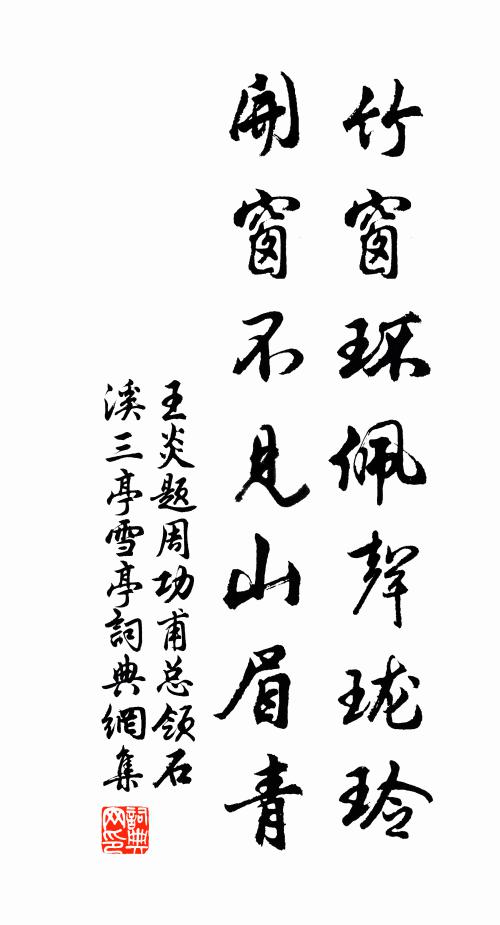 竹窗环佩聲珑玲
開窗不見山眉青
王炎题周功甫总领石
溪三亭雪亭詞典網集
詞典
网印